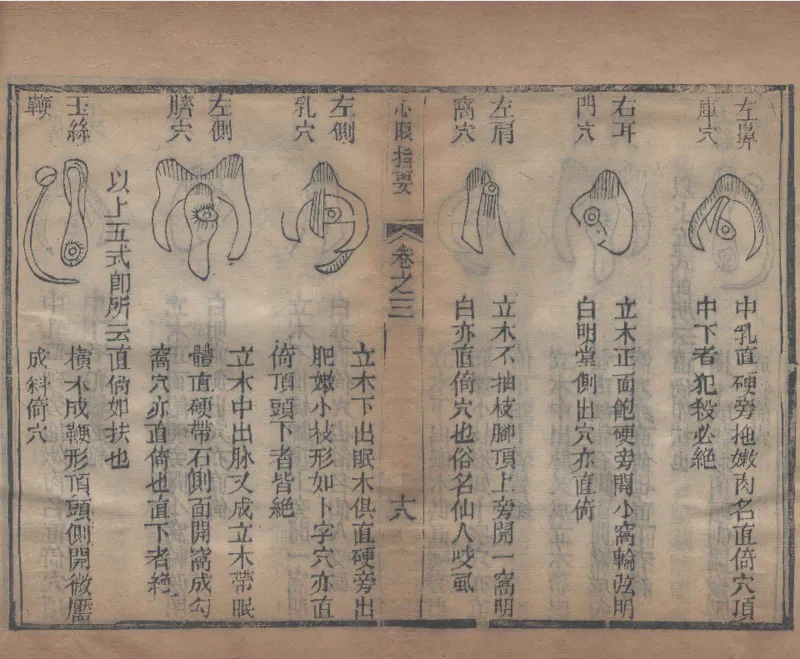 左鼻
庫穴
中乳直硬旁拖嫩肉名直倚穴頂
中下者犯殺必絶
右耳
門穴
立木正面飽硬旁開小窩輪弦明
白明堂側出穴亦直倚
左肩
窩穴
立木不抽枝腳頂上旁開一窩明
白亦直倚穴也俗名仙人虱
心眼指要
卷之三
十六
左側
乳穴
立木下出眠木俱直硬旁出
肥嫩小枝形如卜字穴亦直
倚頂頭下者皆絶
左側
臍穴
立木中出脉又成立木帶眠
體直硬帶石側面開窩成勾
窩穴亦直倚也直下者絶
以上五式卽所云直倚如扶也
玉絲
鞭
橫木成鞭形頂頭側開微靨
成斜倚穴